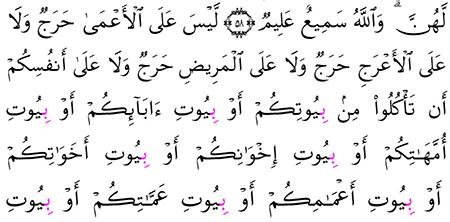 لَّهُنَّۗ وَٱللَّهُ سَمِيعٌ عَلِيمٌ ۝٥٨ لَّيْسَ عَلَى ٱلْأَعْمَىٰ حَرَجٌ وَلَا
عَلَى ٱلْأَعْرَجِ حَرَجٌ وَلَا عَلَى ٱلْمَرِيضِ حَرَجٌ وَلَا عَلَىٰ أَنفُسِكُمْ
أَن تَأْكُلُوا۟ مِنۢ بِيُوتِكُمْ أَوْ بِيُوتِ ءَابَآئِكُمْ أَوْ بِيُوتِ
أُمَّهَٰتِكُمْ أَوْ بِيُوتِ إِخْوَٰنِكُمْ أَوْ بِيُوتِ أَخَوَٰتِكُمْ
أَوْ بِيُوتِ أَعْمَٰمِكُمْ أَوْ بِيُوتِ عَمَّٰتِكُمْ أَوْ بِيُوتِ